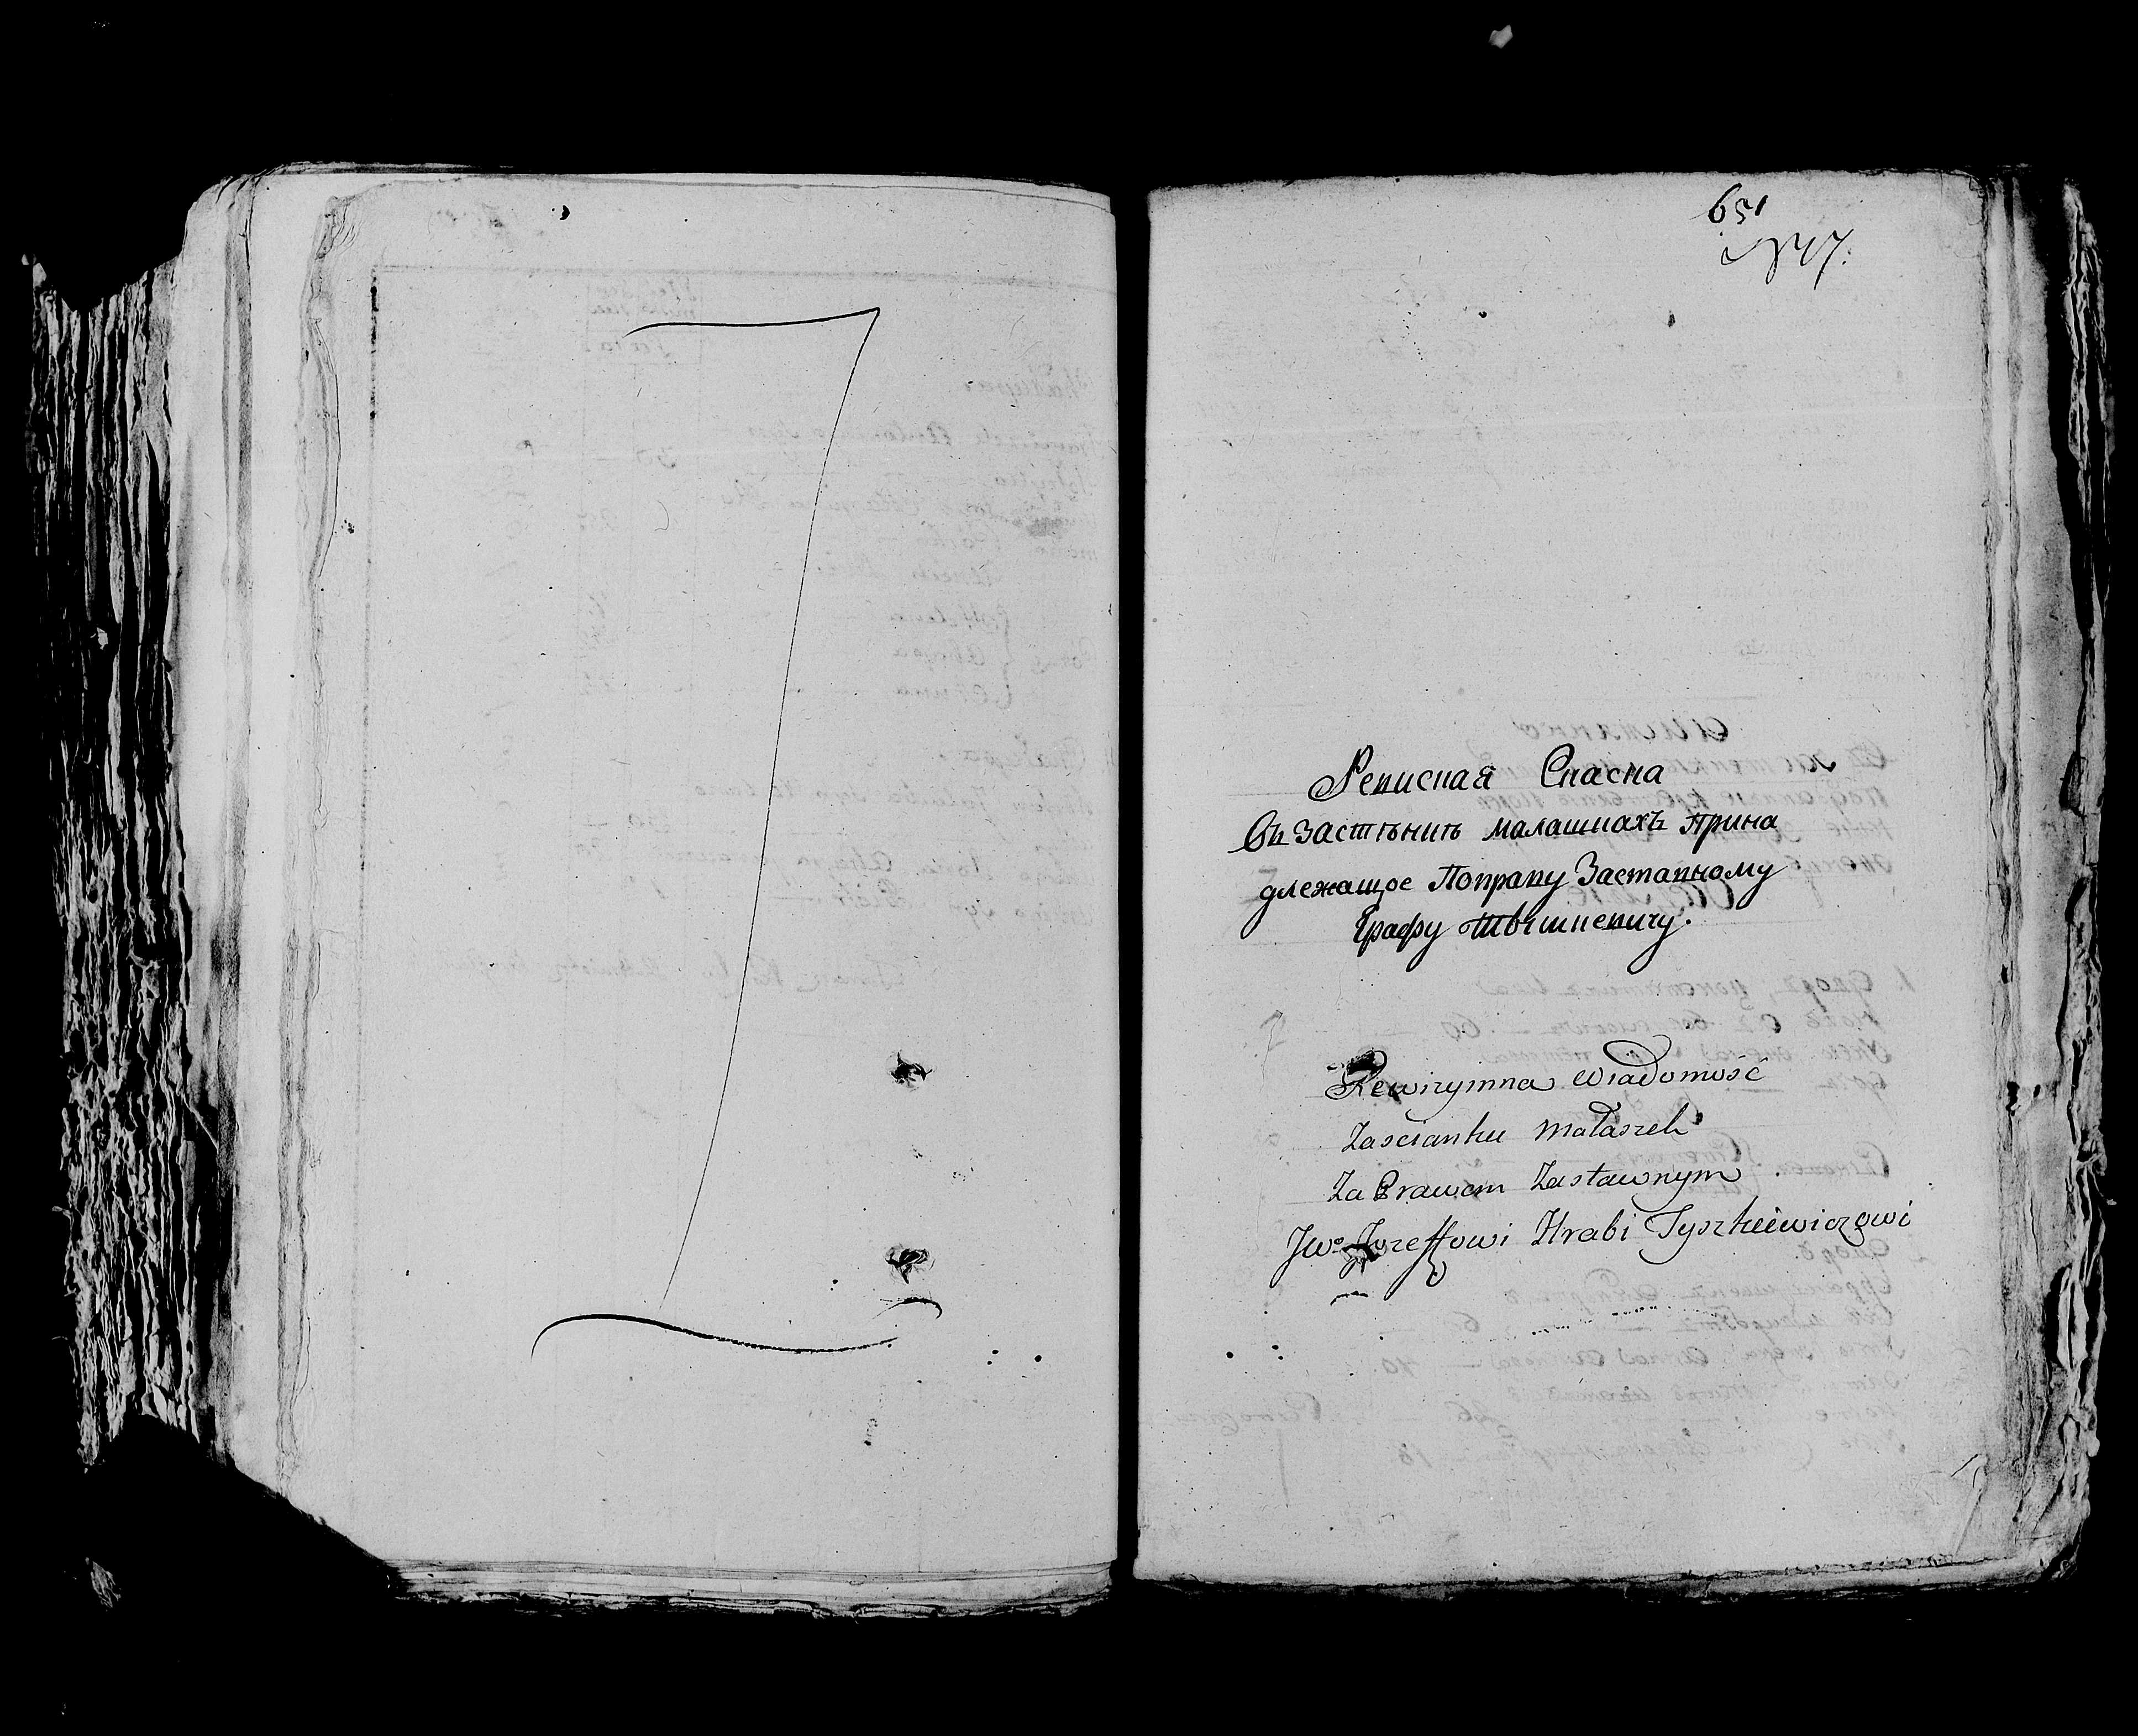 651
847.
Ревиская Скаска
Въ Застѣнкѣ малашкахъ Прина
длежащое Поправу Заставному
Графу Тышкевичу.
Rewizyinna Wiadomość
Zascianku Małaszek
Za Prawem Zastawnym
JWo Jozeffowi Hrabi Tyszkiewiczowi